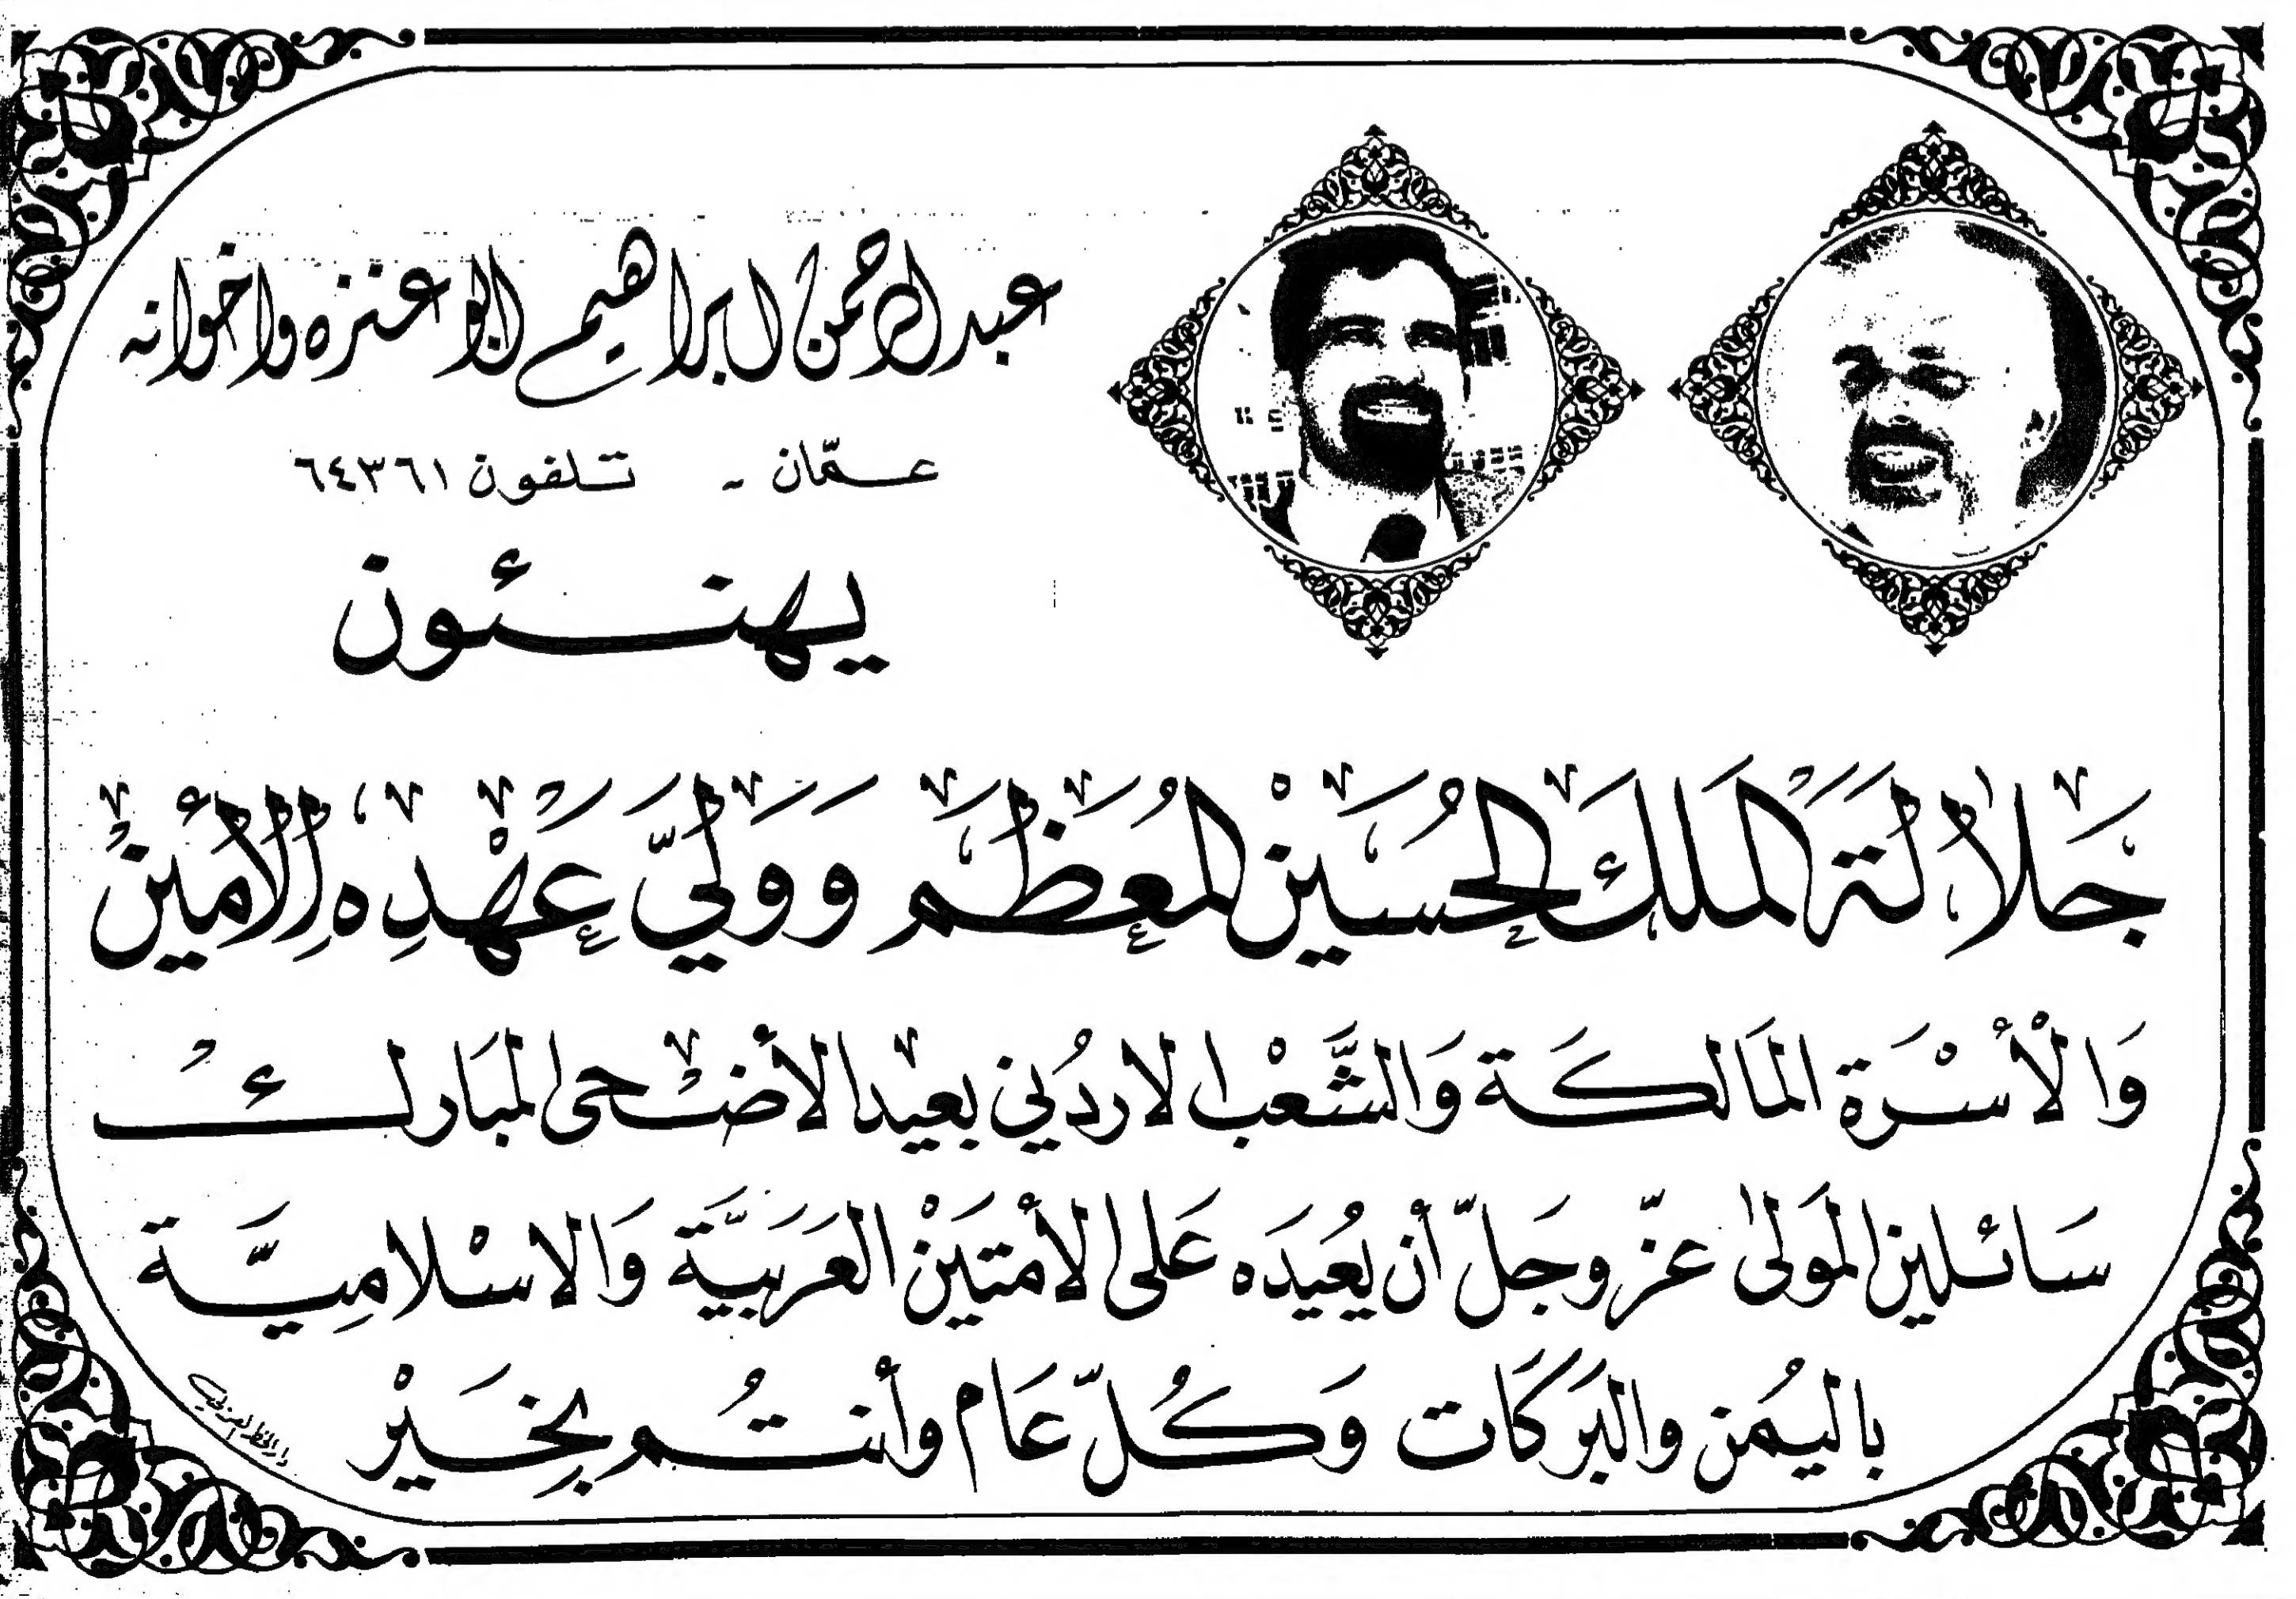 عبدالرحمن ابراهيم ابو عنزه واخوانه
عمّان - تلفون ٦٤٣٦١
يهنئون
جَلاَلَةَ المَلكَ الحُسَينْ المُعَظَم وَوَليَّ عَهْدِهِ الأَمين
وَالْأُسْرَة المَالكَة وَالشَّعْب الاردُني بعيد الأضْحى المبَارك
سَائلين المَولىٰ عزّ وجَلّ أن يُعيدَه عَلى الأمتَينْ العَرَبيَّة وَالاسْلاميَّة
باليُمن والبَرَكَات وَكُلّ عَام وأنتُم بخَيْر